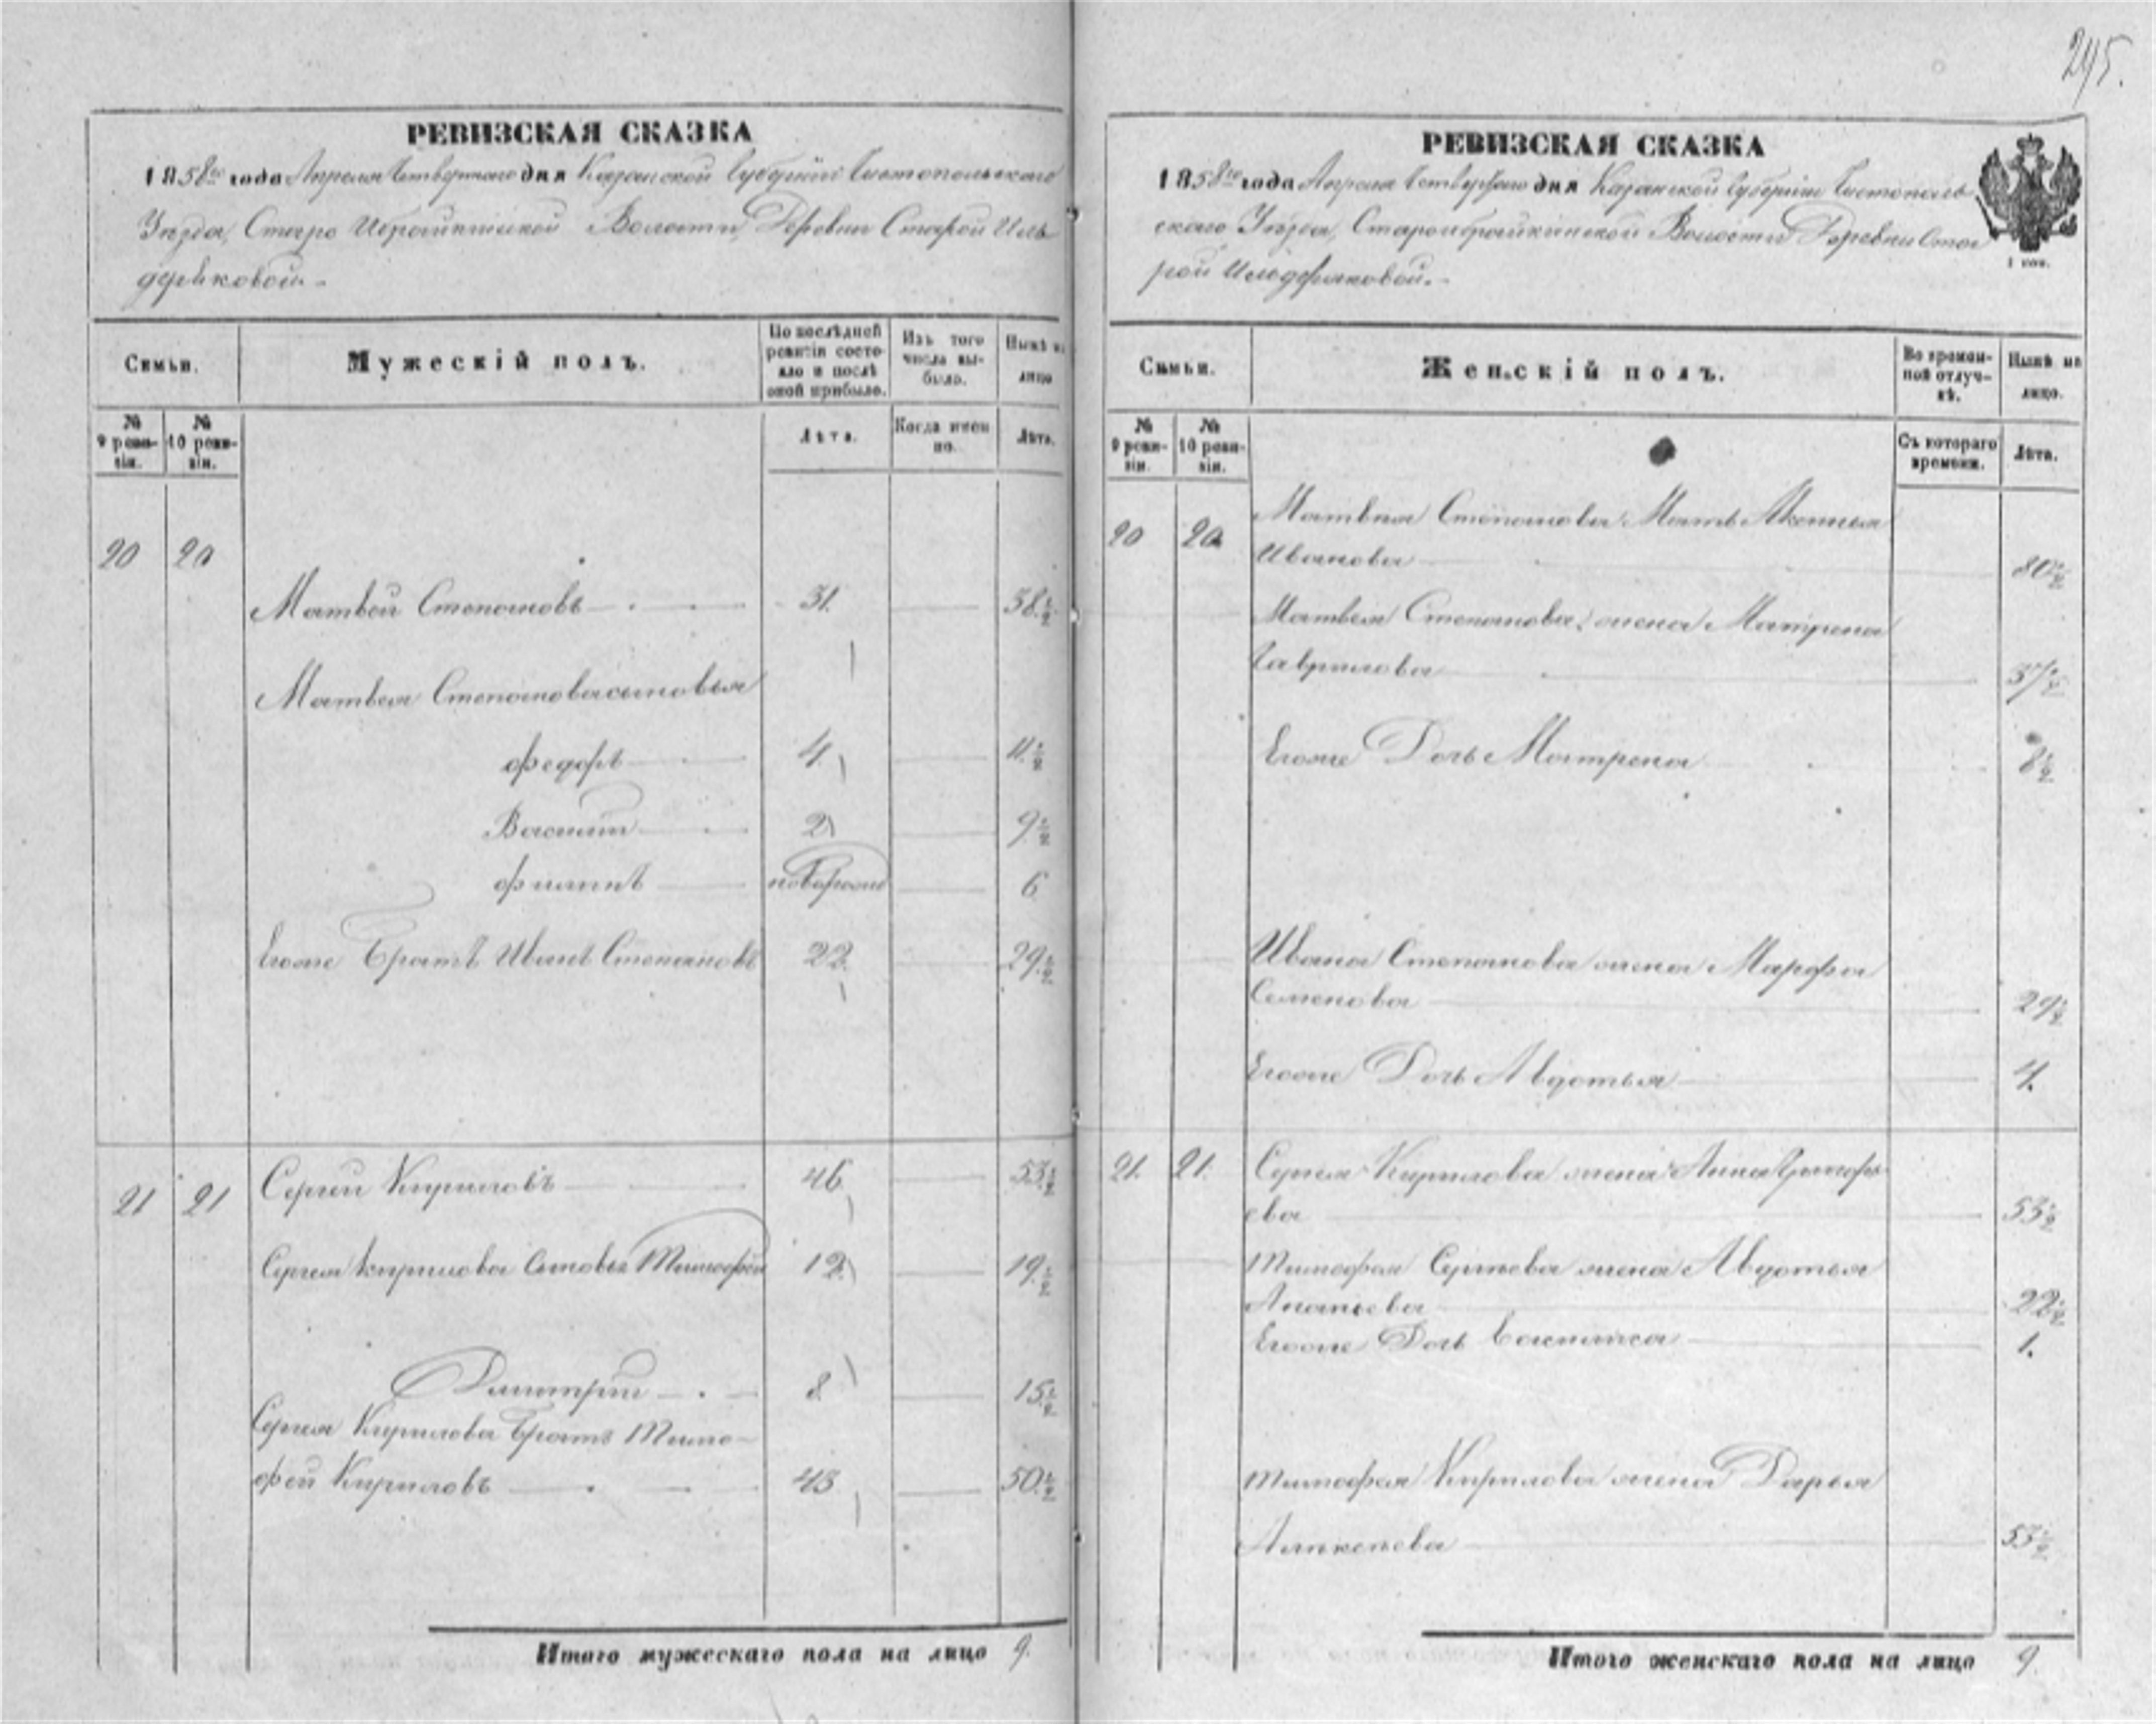 295.
РЕВИЗСКАЯ СКАЗКА
1858го года Апреля Четвертаго дня Казанской Губернiи Чистопольскаго
Уезда, Старо Ибрайкинской Волости, Деревни Старой Иль
деряковой.-
Семьи.
Мужескій полъ.
По послѣдней ревизіи состояло и послѣ оной прибыло.
Изъ того числа выбыло.
Нынѣ на лицо
№ 9 ревизіи.
№ 10 ревизіи.
Лѣта.
Когда именно.
Лѣта.
20 20
Матвей Степановъ 31. 38½
Матвея Степанова сыновья
Федоръ 4 11½
Василий 2 9½
Филиппъ новорожд 6
Егоже Братъ Иванъ Степановъ 22. 29½
21 21 Сергей Кириловъ 46 53½
Сергея Кирилова Сыновья Тимофей 12 19½
Дмитрий 8 15½
Сергея Кирилова Братъ Тимо-
фей Кириловъ 43 50½
Итого мужескаго пола на лицо 9.
РЕВИЗСКАЯ СКАЗКА
1858го года Апреля Четвертаго дня Казанской Губернiи Чистополь
скаго Уезда, Староибрайкинской Волости Деревни Ста
рой Ильдеряковой.-
1 коп.
Семьи.
Женскій полъ.
Во временной отлучкѣ.
Нынѣ на лицо.
№ 9 ревизіи.
№ 10 ревизіи.
Съ котораго времени.
Лѣта.
20 20 Матвея Степанова Мать Аксинья
Иванова 80½
Матвея Степанова жена Матрена
Гаврилова 37½
Егоже Дочь Матрена 8½
Ивана Степанова жена Марфа
Семенова 29½
Егоже Дочь Авдотья 4.
21. 21. Сергея Кирилова жена Анна Григорь
ева 53½
Тимофея Сергеева жена Авдотья
Ананьева 22½
Егоже Дочь 1.
Тимофея Кирилова жена Дарья
53½
Итого женскаго пола на лицо 9.